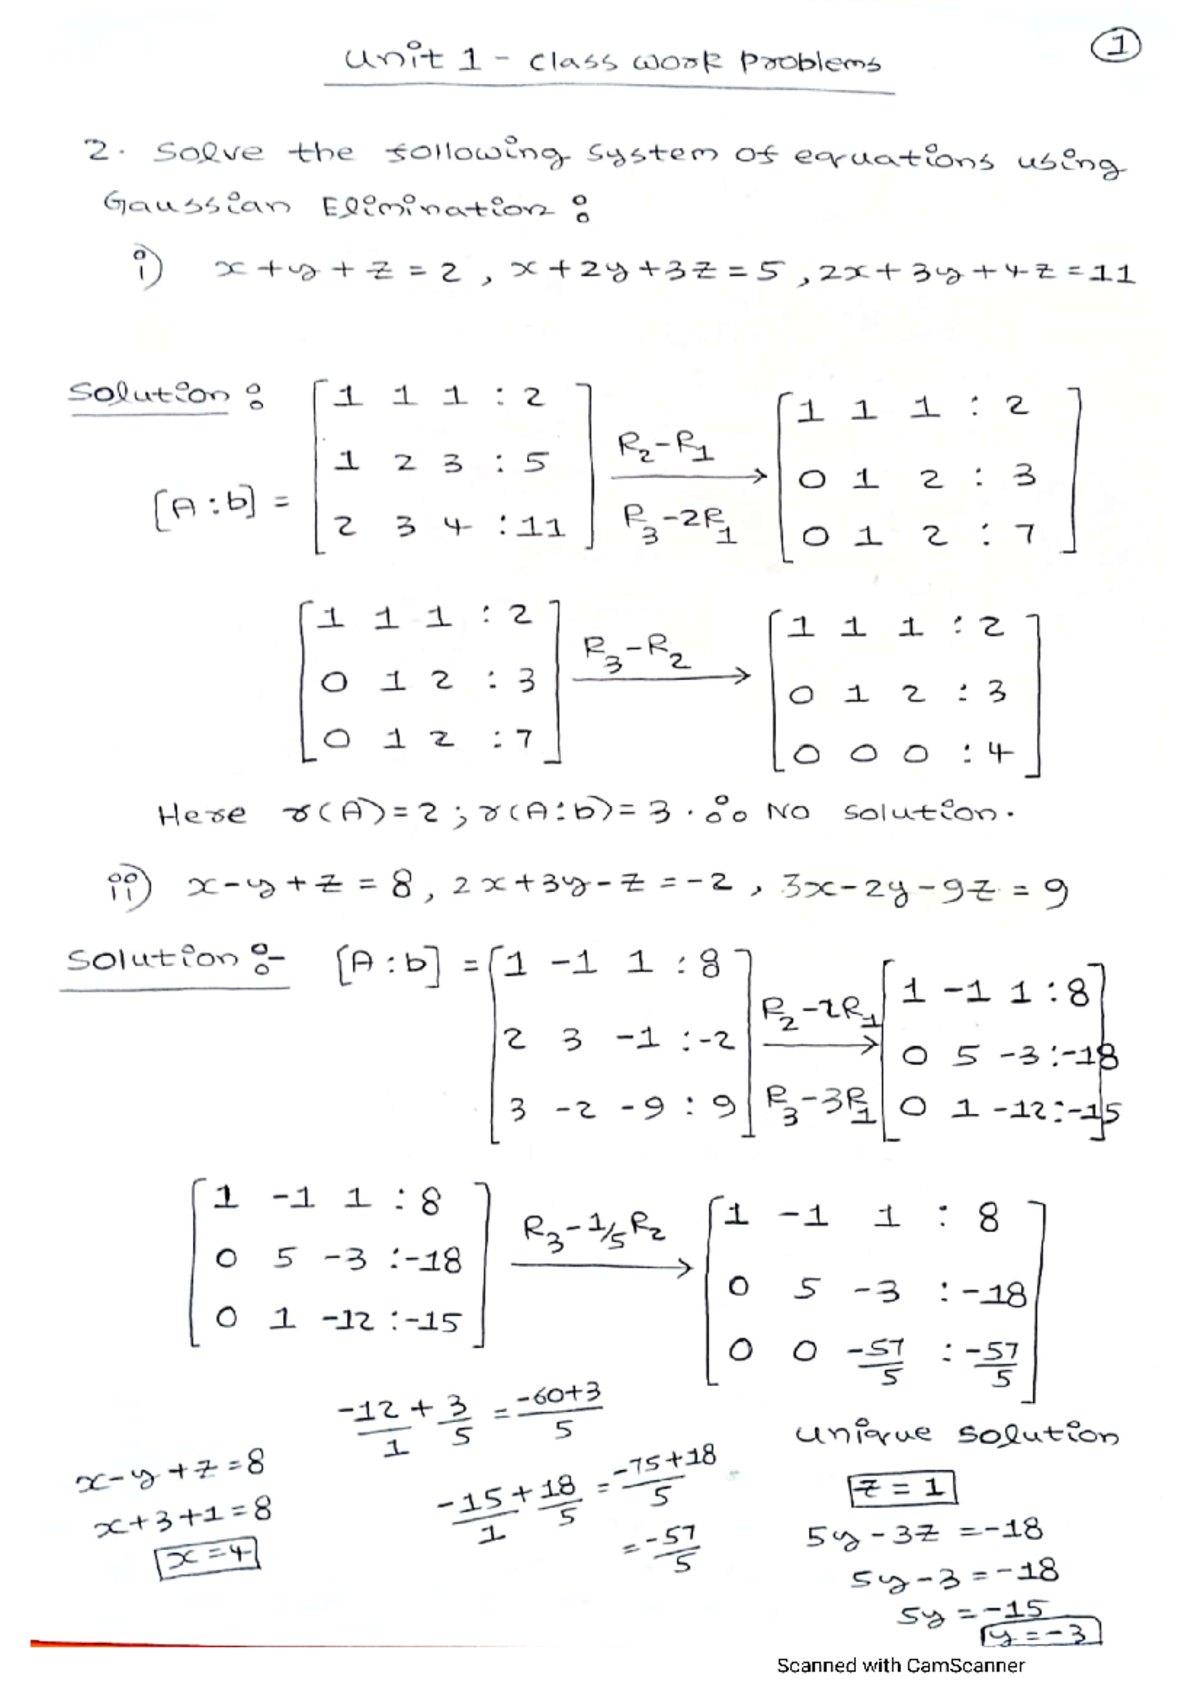 1
Unit 1 - class work problems
2. Solve the following system of equations using
Gaussian Elimination :
i) x+y+z=2, x+2y+3z=5, 2x+3y+4z=11
Solution :
[A:b] =
[1 1 1 : 2
1 2 3 : 5
2 3 4 : 11]
R2-R1
R3-2R1
[1 1 1 : 2
0 1 2 : 3
0 1 2 : 7]
[1 1 1 : 2
0 1 2 : 3
0 1 2 : 7]
R3-R2
[1 1 1 : 2
0 1 2 : 3
0 0 0 : 4]
Here r(A)=2; r(A:b)=3. ∴ No solution.
ii) x-y+z=8, 2x+3y-z=-2, 3x-2y-9z=9
Solution :-
[A:b] =
[1 -1 1 : 8
2 3 -1 : -2
3 -2 -9 : 9]
R2-2R1
R3-3R1
[1 -1 1 : 8
0 5 -3 : -18
0 1 -12 : -15]
[1 -1 1 : 8
0 5 -3 : -18
0 1 -12 : -15]
R3-1/5R2
[1 -1 1 : 8
0 5 -3 : -18
0 0 -57/5 : -57/5]
-12/1 + 3/5 = -60+3/5
-15/1 + 18/5 = -75+18/5
= -57/5
x-y+z=8
x+3+1=8
x=4
Unique solution
z=1
5y-3z=-18
5y-3=-18
5y=-15
y=-3
Scanned with CamScanner